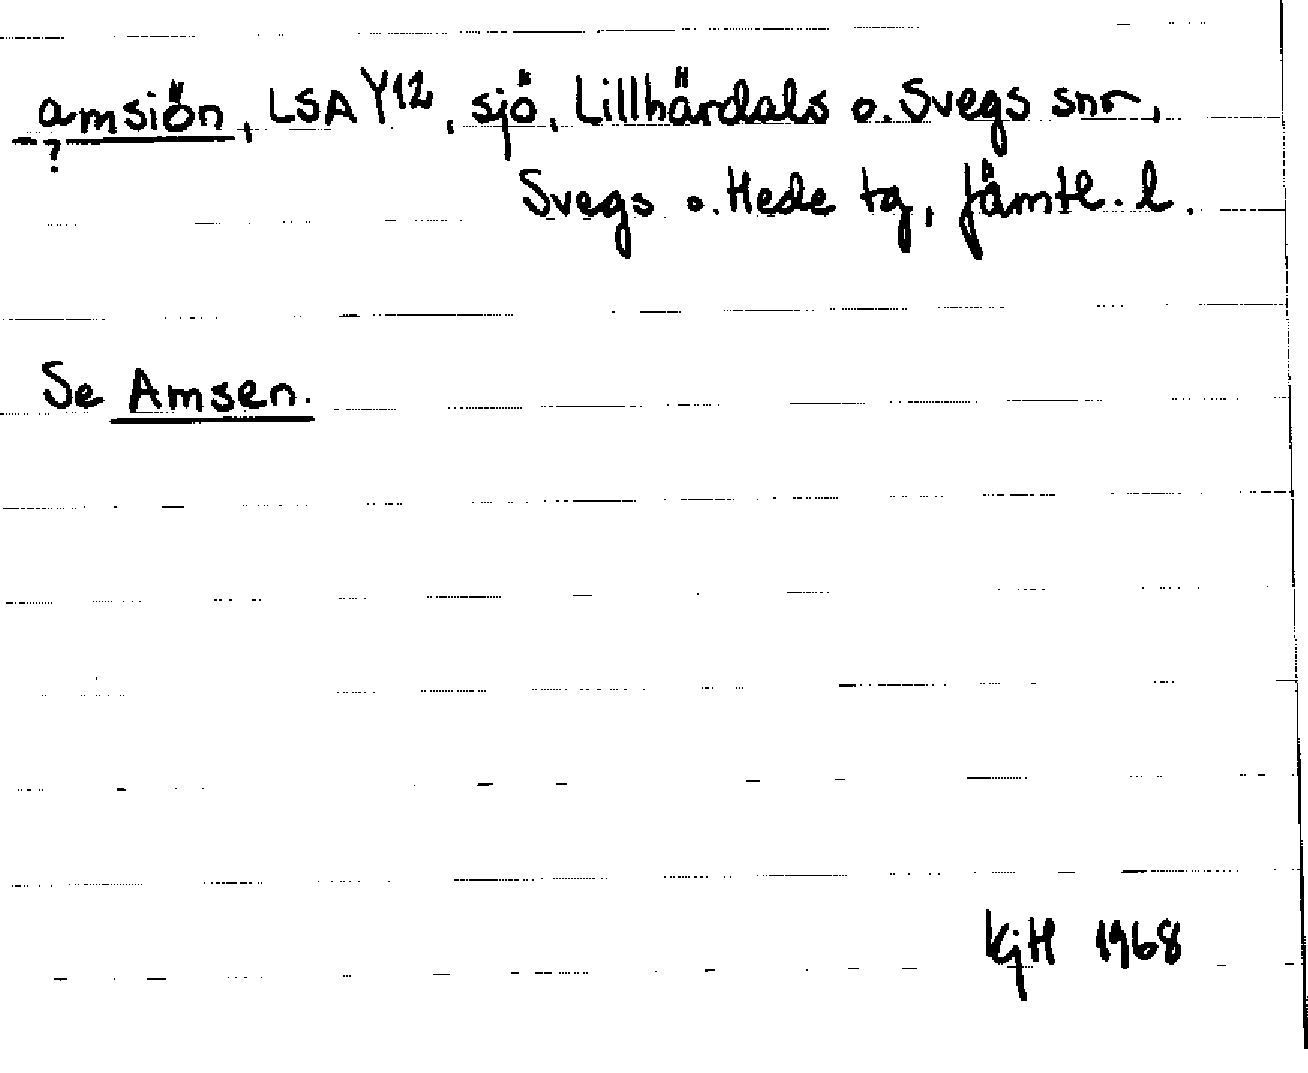 amsiön, LSA Y12, sjö, Lillhärdals o. Svegs snr,
?
Svegs o. Hede tg, Jämtl. l.
Se Amsen.
KjH 1968